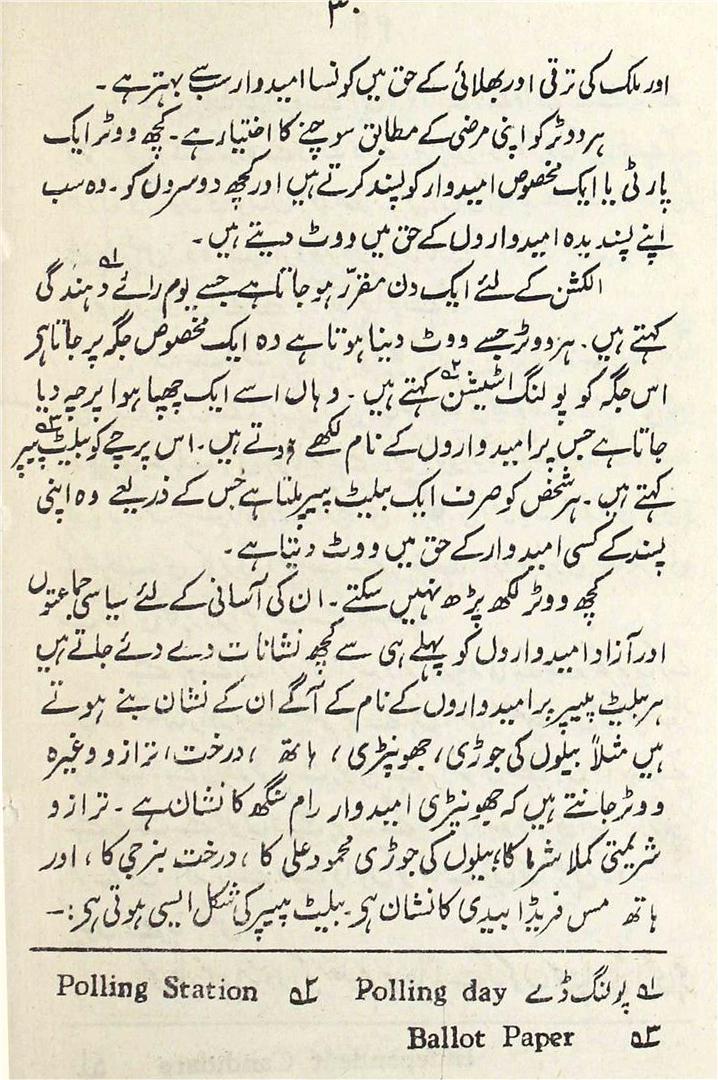 ۳۰
اور ملک کی ترقی اور بھلائی کے حق میں کونسا امیدوار سب سے بہتر ہے۔
ہر ووٹر کو اپنی مرضی کے مطابق سوچنے کا اختیار ہے۔ کچھ ووٹر ایک
پارٹی یا ایک مخصوص امیدوار کو پسند کرتے ہیں اور کچھ دوسروں کو۔ وہ سب
اپنے پسندیدہ امیدواروں کے حق میں ووٹ دیتے ہیں۔
الکشن کے لئے ایک دن مقرّر ہو جاتا ہے جسے یوم رائے دہندگی ؎۱
کہتے ہیں۔ ہر ووٹر جسے ووٹ دینا ہوتا ہے وہ ایک مخصوص جگہ پر جاتا ہی
اس جگہ کو پولنگ اسٹیشن ؎۲ کہتے ہیں۔ وہاں اسے ایک چھپا ہوا پرچہ دیا
جاتا ہے جس پر امیدواروں کے نام لکھے ہوتے ہیں۔ اس پرچے کو بیلیٹ پیپر ؎۳
کہتے ہیں۔ ہر شخص کو صرف ایک بیلیٹ پیپر ملتا ہے جس کے ذریعے وہ اپنی
پسند کے کسی امیدوار کے حق میں ووٹ دیتا ہے۔
کچھ ووٹر لکھ پڑھ نہیں سکتے۔ ان کی آسانی کے لئے سیاسی جماعتوں
اور آزاد امیدواروں کو پہلے ہی سے کچھ نشانات دے دئے جاتے ہیں
ہر بیلیٹ پیپر پر امیدواروں کے نام کے آگے ان کے نشان بنے ہوتے
ہیں مثلاً بیلوں کی جوڑی، جھونپڑی، ہاتھ، درخت، ترازو وغیرہ
ووٹر جانتے ہیں کہ جھونپڑی امیدوار رام سنگھ کا نشان ہے۔ ترازو
شریمتی کملا شرما کا، بیلوں کی جوڑی محمود علی کا، درخت بنرجی کا، اور
ہاتھ مس فریڈا بیدی کا نشان ہی۔ بیلیٹ پیپر کی شکل ایسی ہوتی ہی:۔
؎۱ پولنگ ڈے Polling day ؎۲ Polling Station
؎۳ Ballot Paper